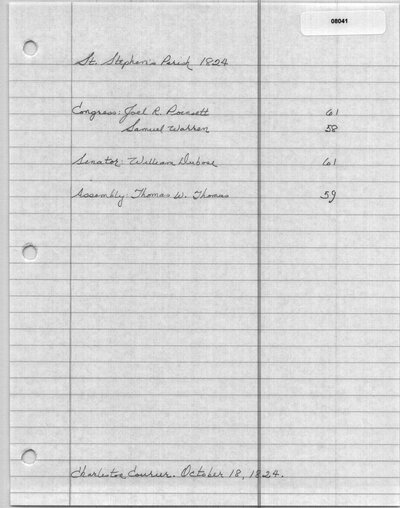 08041
St. Stephen's Parish 1824
Congress: Joel R. Poinsett 61
Samuel Warren 58
Senator: William Dubose 61
Assembly: Thomas W. Thomas 59
Charleston Courier. October 18, 1824.